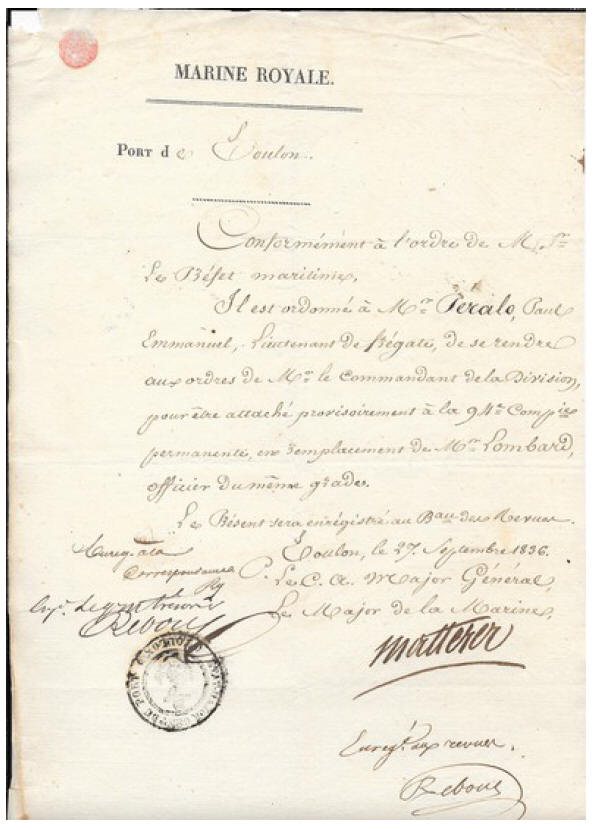 MARINE ROYALE.
PORT de Toulon.
Conformément à l'ordre de M. Sr
Le Préfet maritime,
Il est ordonné à Mr Peralo, Paul
Emmanuel, Lieutenant de frégate, de se rendre
aux ordres de Mr le Commandant de la Division,
pour être attaché provisoirement à la 94e Compie
permanente, en remplacement de Mr Lombard,
officier du même grade.
Le Présent sera enrégistré au Bau des Revues.
Toulon, le 27 Septembre 1836.
P. Le C. A. Major Général,
Le Major de la Marine,
Matterer
Enreg. à la
Correspondance
Reboul
Enregé aux revues.
Reboul